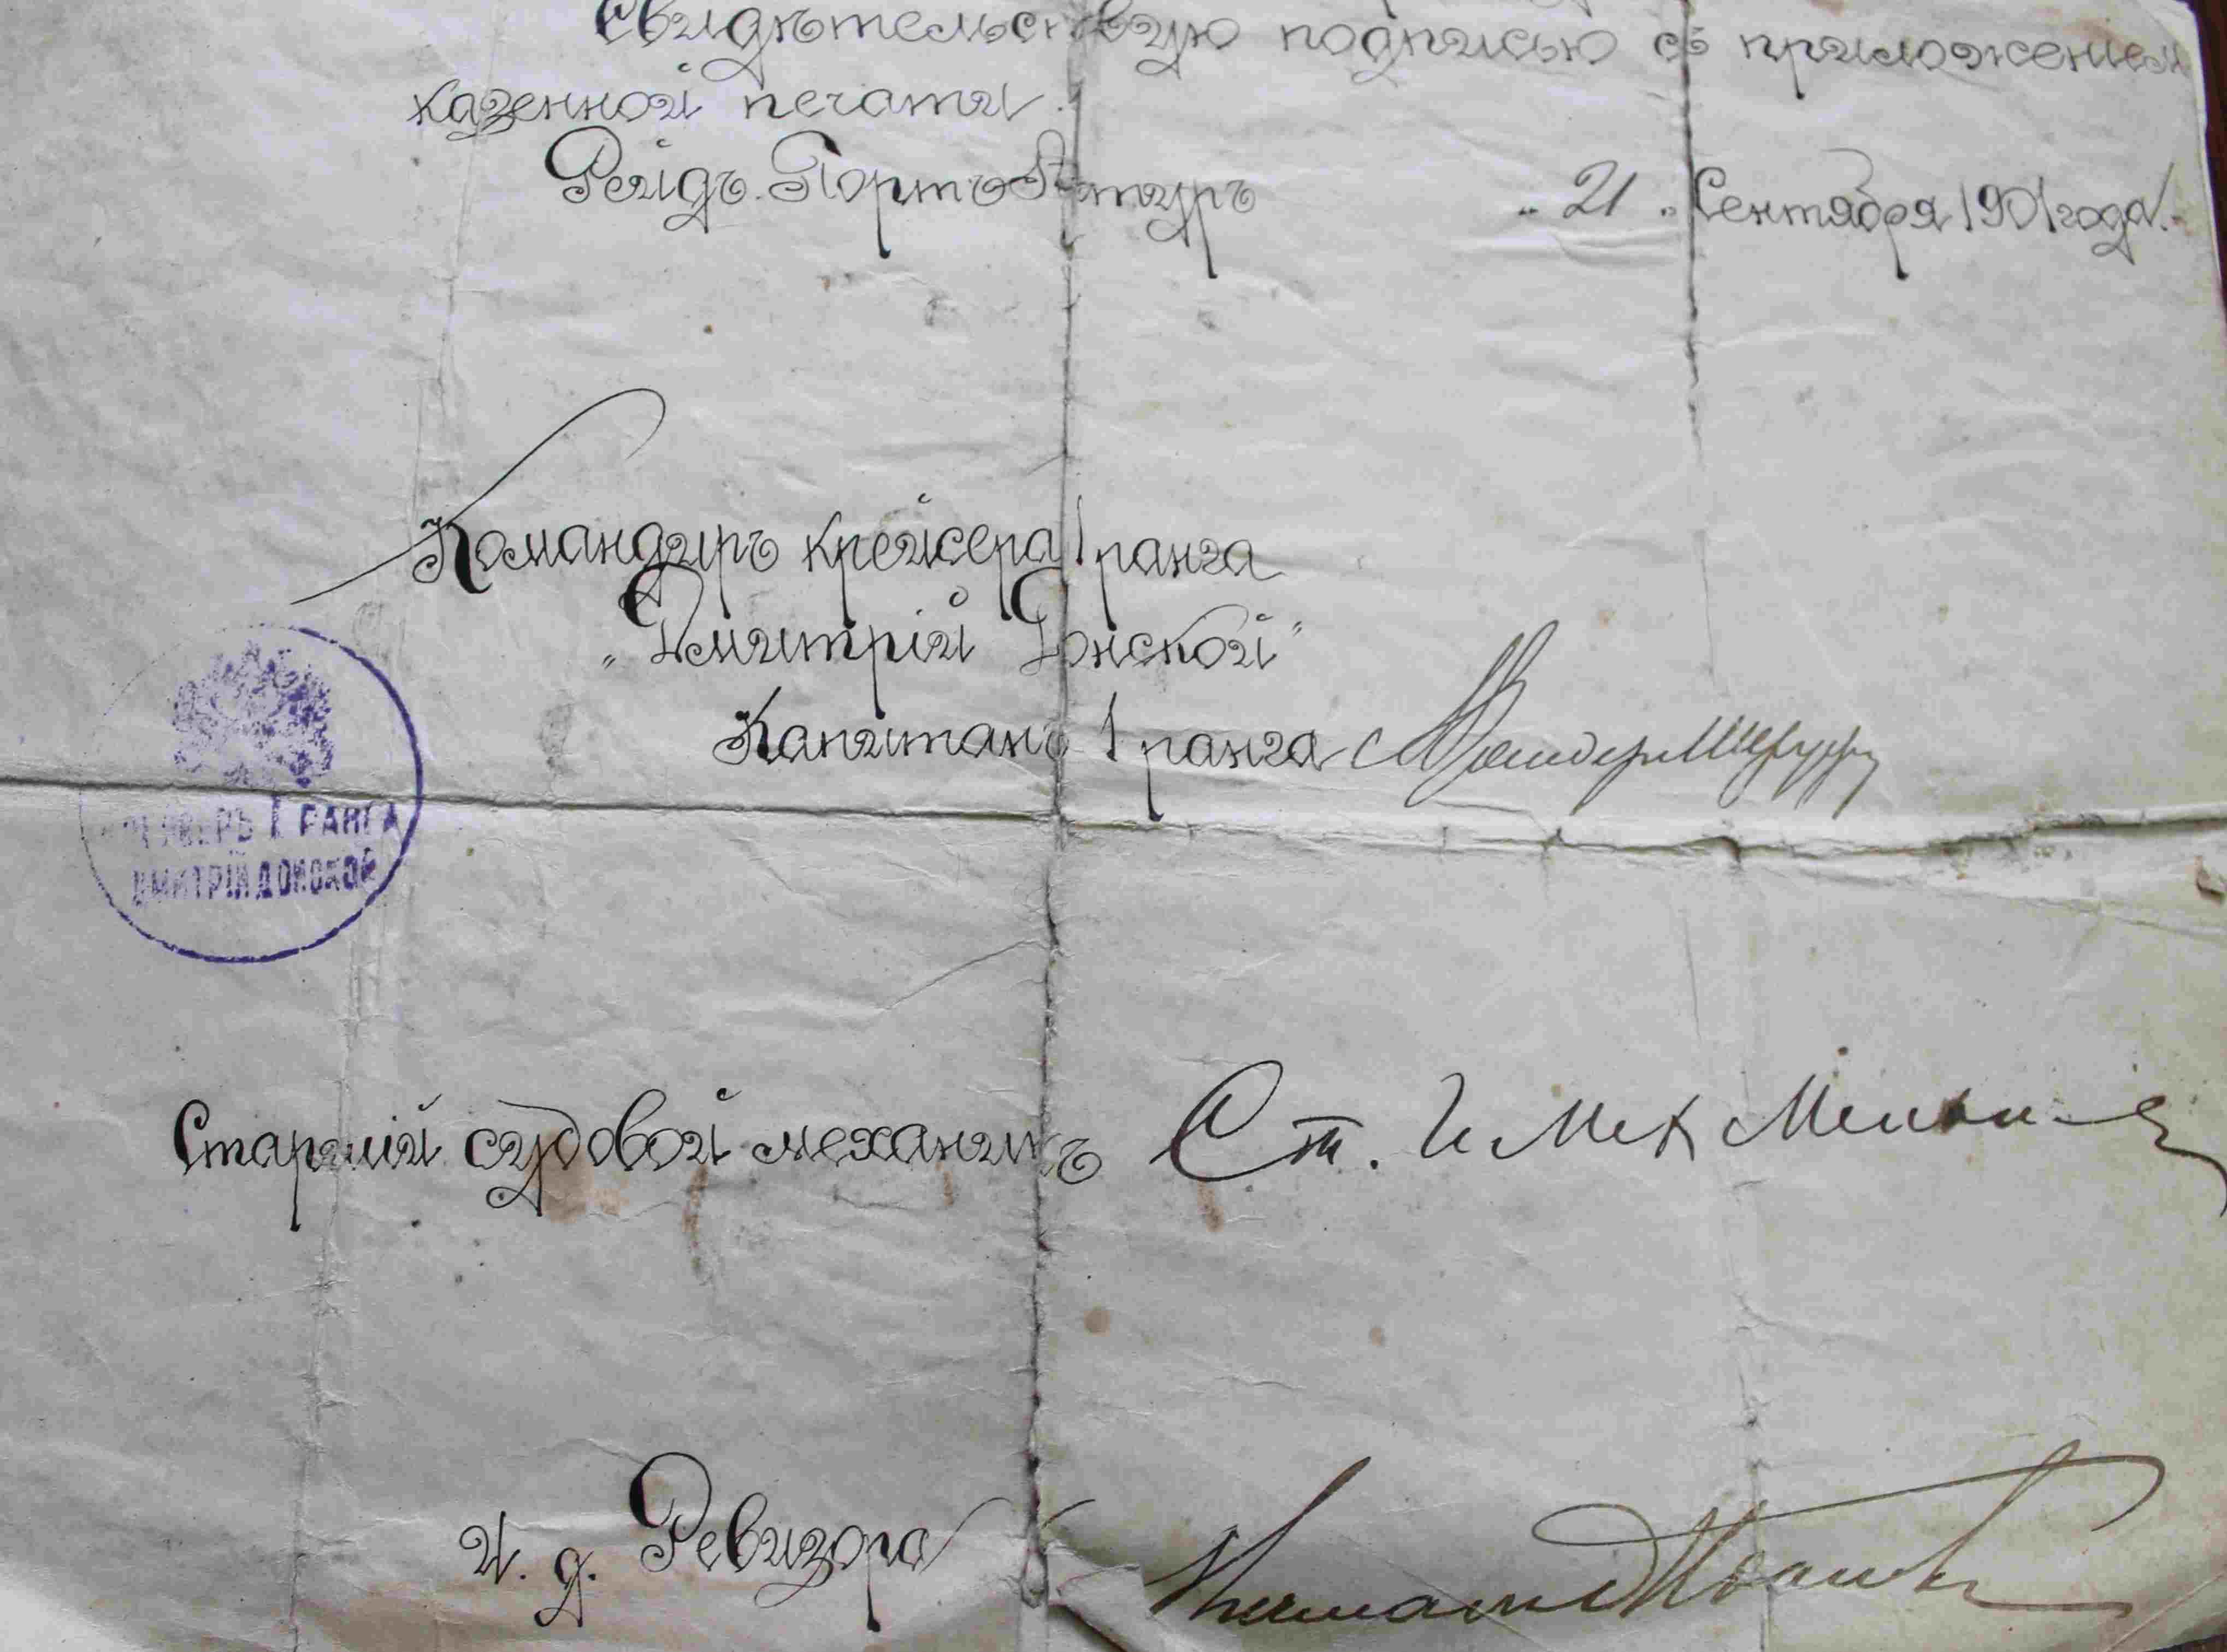 Свидѣтельствую подписью съ приложеніем
казенной печати.
Рейдъ Портъ Артуръ „ 21 „ Сентября 1901 года.
Командиръ крейсера I ранга
„Дмитрій Донской"
Капитанъ I ранга
КРЕЙСЕРЪ I РАНГА
ДМИТРІЙ ДОНСКОЙ
Старшій судовой механикъ Ст. И. Мех
И. д. Ревизора